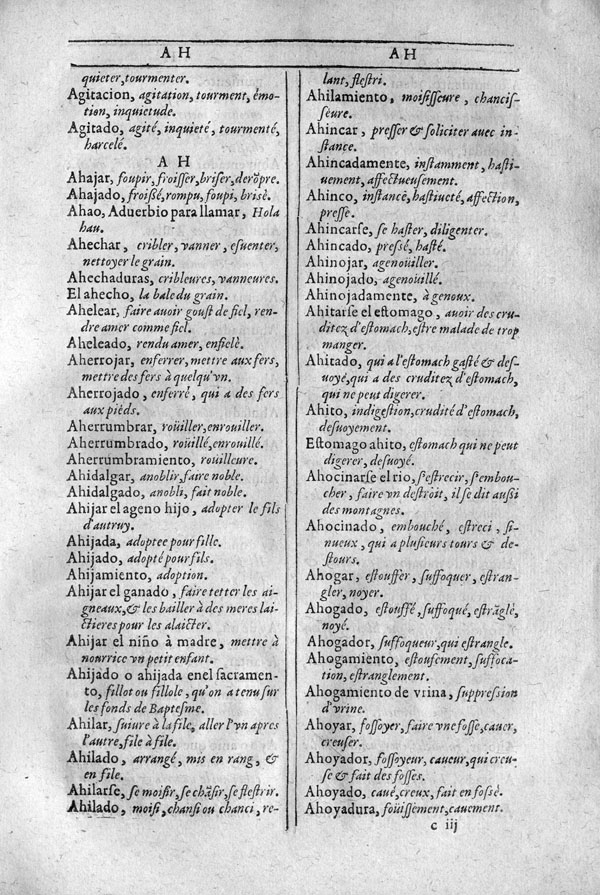 AH
AH
quieter, tourmenter.
Agitacion, agitation, tourment, émo-
tion, inquietude.
Agitado, agité, inquieté, tourmenté,
harcelé.
AH
Ahajar, foupir, froisser, briser, derōpre.
Ahajado, froißé, rompu, foupi, brisè.
Ahao, Aduerbio para llamar, Hola
hau.
Ahechar, cribler, vanner, esuenter,
nettoyer le grain.
Ahechaduras, cribleures, vanneures.
El ahecho, la bale du grain.
Ahelear, faire auoir goust de fiel, ren-
dre amer comme fiel.
Aheleado, rendu amer, enfielè.
Aherrojar, enferrer, mettre aux fers,
mettre des fers à quelqu'vn.
Aherrojado, enferré, qui a des fers
aux pièds.
Aherrumbrar, roüiller, enrouiller.
Aherrumbrado, roüillé, enrouillé.
Aherrumbramiento, roüilleure.
Ahidalgar, anoblir, faire noble.
Ahidalgado, anobli, fait noble.
Ahijar el ageno hijo, adopter le fils
d'autruy.
Ahijada, adoptee pour fille.
Ahijado, adopté pour fils.
Ahijamiento, adoption.
Ahijar el ganado, faire tetter les ai-
gneaux, & les bailler à des meres lai-
ctieres pour les alaicter.
Ahijar el niño à madre, mettre à
nourrice vn petit enfant.
Ahijado o ahijada en el sacramen-
to, fillot ou fillole, qu'on a tenu sur
les fonds de Baptesme.
Ahilar, suiure à la file, aller l'vn apres
l'autre, file à file.
Ahilado, arrangé, mis en rang, &
en file.
Ahilarse, se moisir, se chāsir, se flestrir.
Ahilado, moisi, chansi ou chanci, re-
lant, flestri.
Ahilamiento, moisisseure, chancis-
seure.
Ahincar, presser & soliciter auec in-
stance.
Ahincadamente, instamment, hasti-
uement, affectueusement.
Ahinco, instancè, hastiueté, affection,
presse.
Ahincarse, se haster, diligenter.
Ahincado, pressé, hasté.
Ahinojar, agenoüiller.
Ahinojado, agenoüillé.
Ahinojadamente, à genoux.
Ahitarse el estomago, auoir des cru-
ditez d'estomach, estre malade de trop
manger.
Ahitado, qui a l'estomach gasté & des-
uoyé, qui a des cruditez d'estomach,
qui ne peut digerer.
Ahito, indigestion, crudité d'estomach,
desuoyement.
Estomago ahito, estomach qui ne peut
digerer, desuoyé.
Ahocinarse el rio, s'estrecir, s'embou-
cher, faire vn destroit, il se dit außi
des montagnes.
Ahocinado, embouché, estreci, si-
nueux, qui a plusieurs tours & de-
stours.
Ahogar, estouffer, suffoquer, estran-
gler, noyer.
Ahogado, estouffé, suffoqué, estrāglè,
noyé.
Ahogador, suffoqueur, qui estrangle.
Ahogamiento, estoufement, suffoca-
tion, estranglement.
Ahogamiento de vrina, suppression
d'vrine.
Ahoyar, fossoyer, faire vne fosse, cauer,
creuser.
Ahoyador, fossoyeur, caueur, qui creu-
se & fait des fosses.
Ahoyado, caué, creux, fait en fossè.
Ahoyadura, foüissement, cauement.
c iij